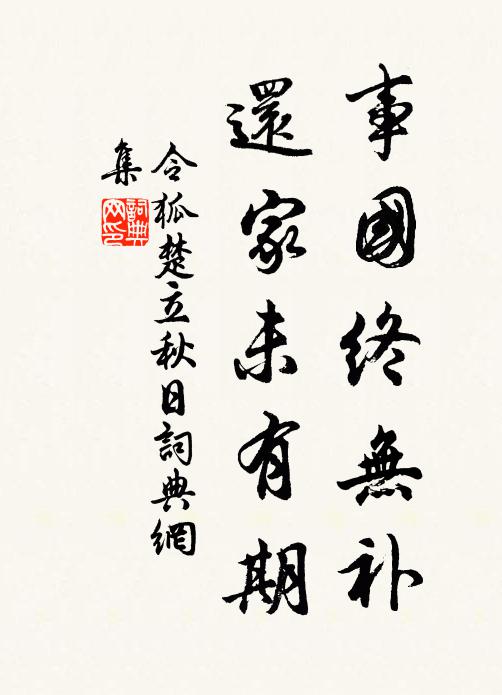 事國終無补
還家未有期
令狐楚立秋日詞典網
集
詞典網印